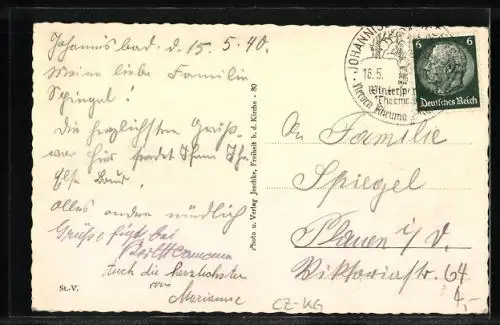 Johannisbad d. 15. 5. 40.
Meine liebe Familie
Spiegel!
Die herzlichsten Grüße
von hier sendet Ihnen Ihre
Else
alles andere mündlich
Grüße fügt bei
Auch die herzlichsten
von
Marianne
St.-V.
Photo u. Verlag Jeschke, Freiheit b. d. Kirche - 80
JOHANNISBAD
16.5.
Wintersport
Therme
Nerven Rheuma
6 6
Deutsches Reich
An Familie
Spiegel
Plauen i/V.
Viktoriastr. 64
4,-
CZ-KG